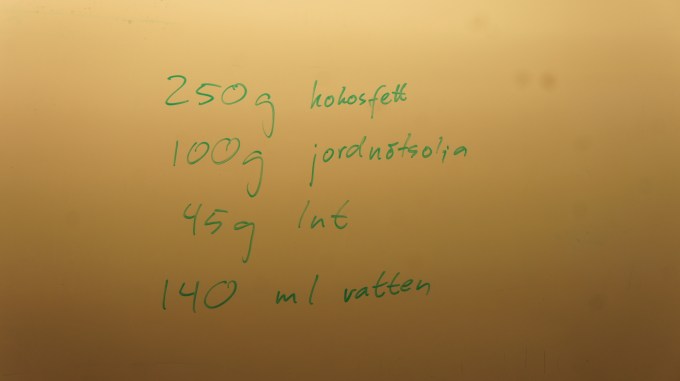 250g kokosfett
100g jordnötsolja
45g lut
140 ml vatten